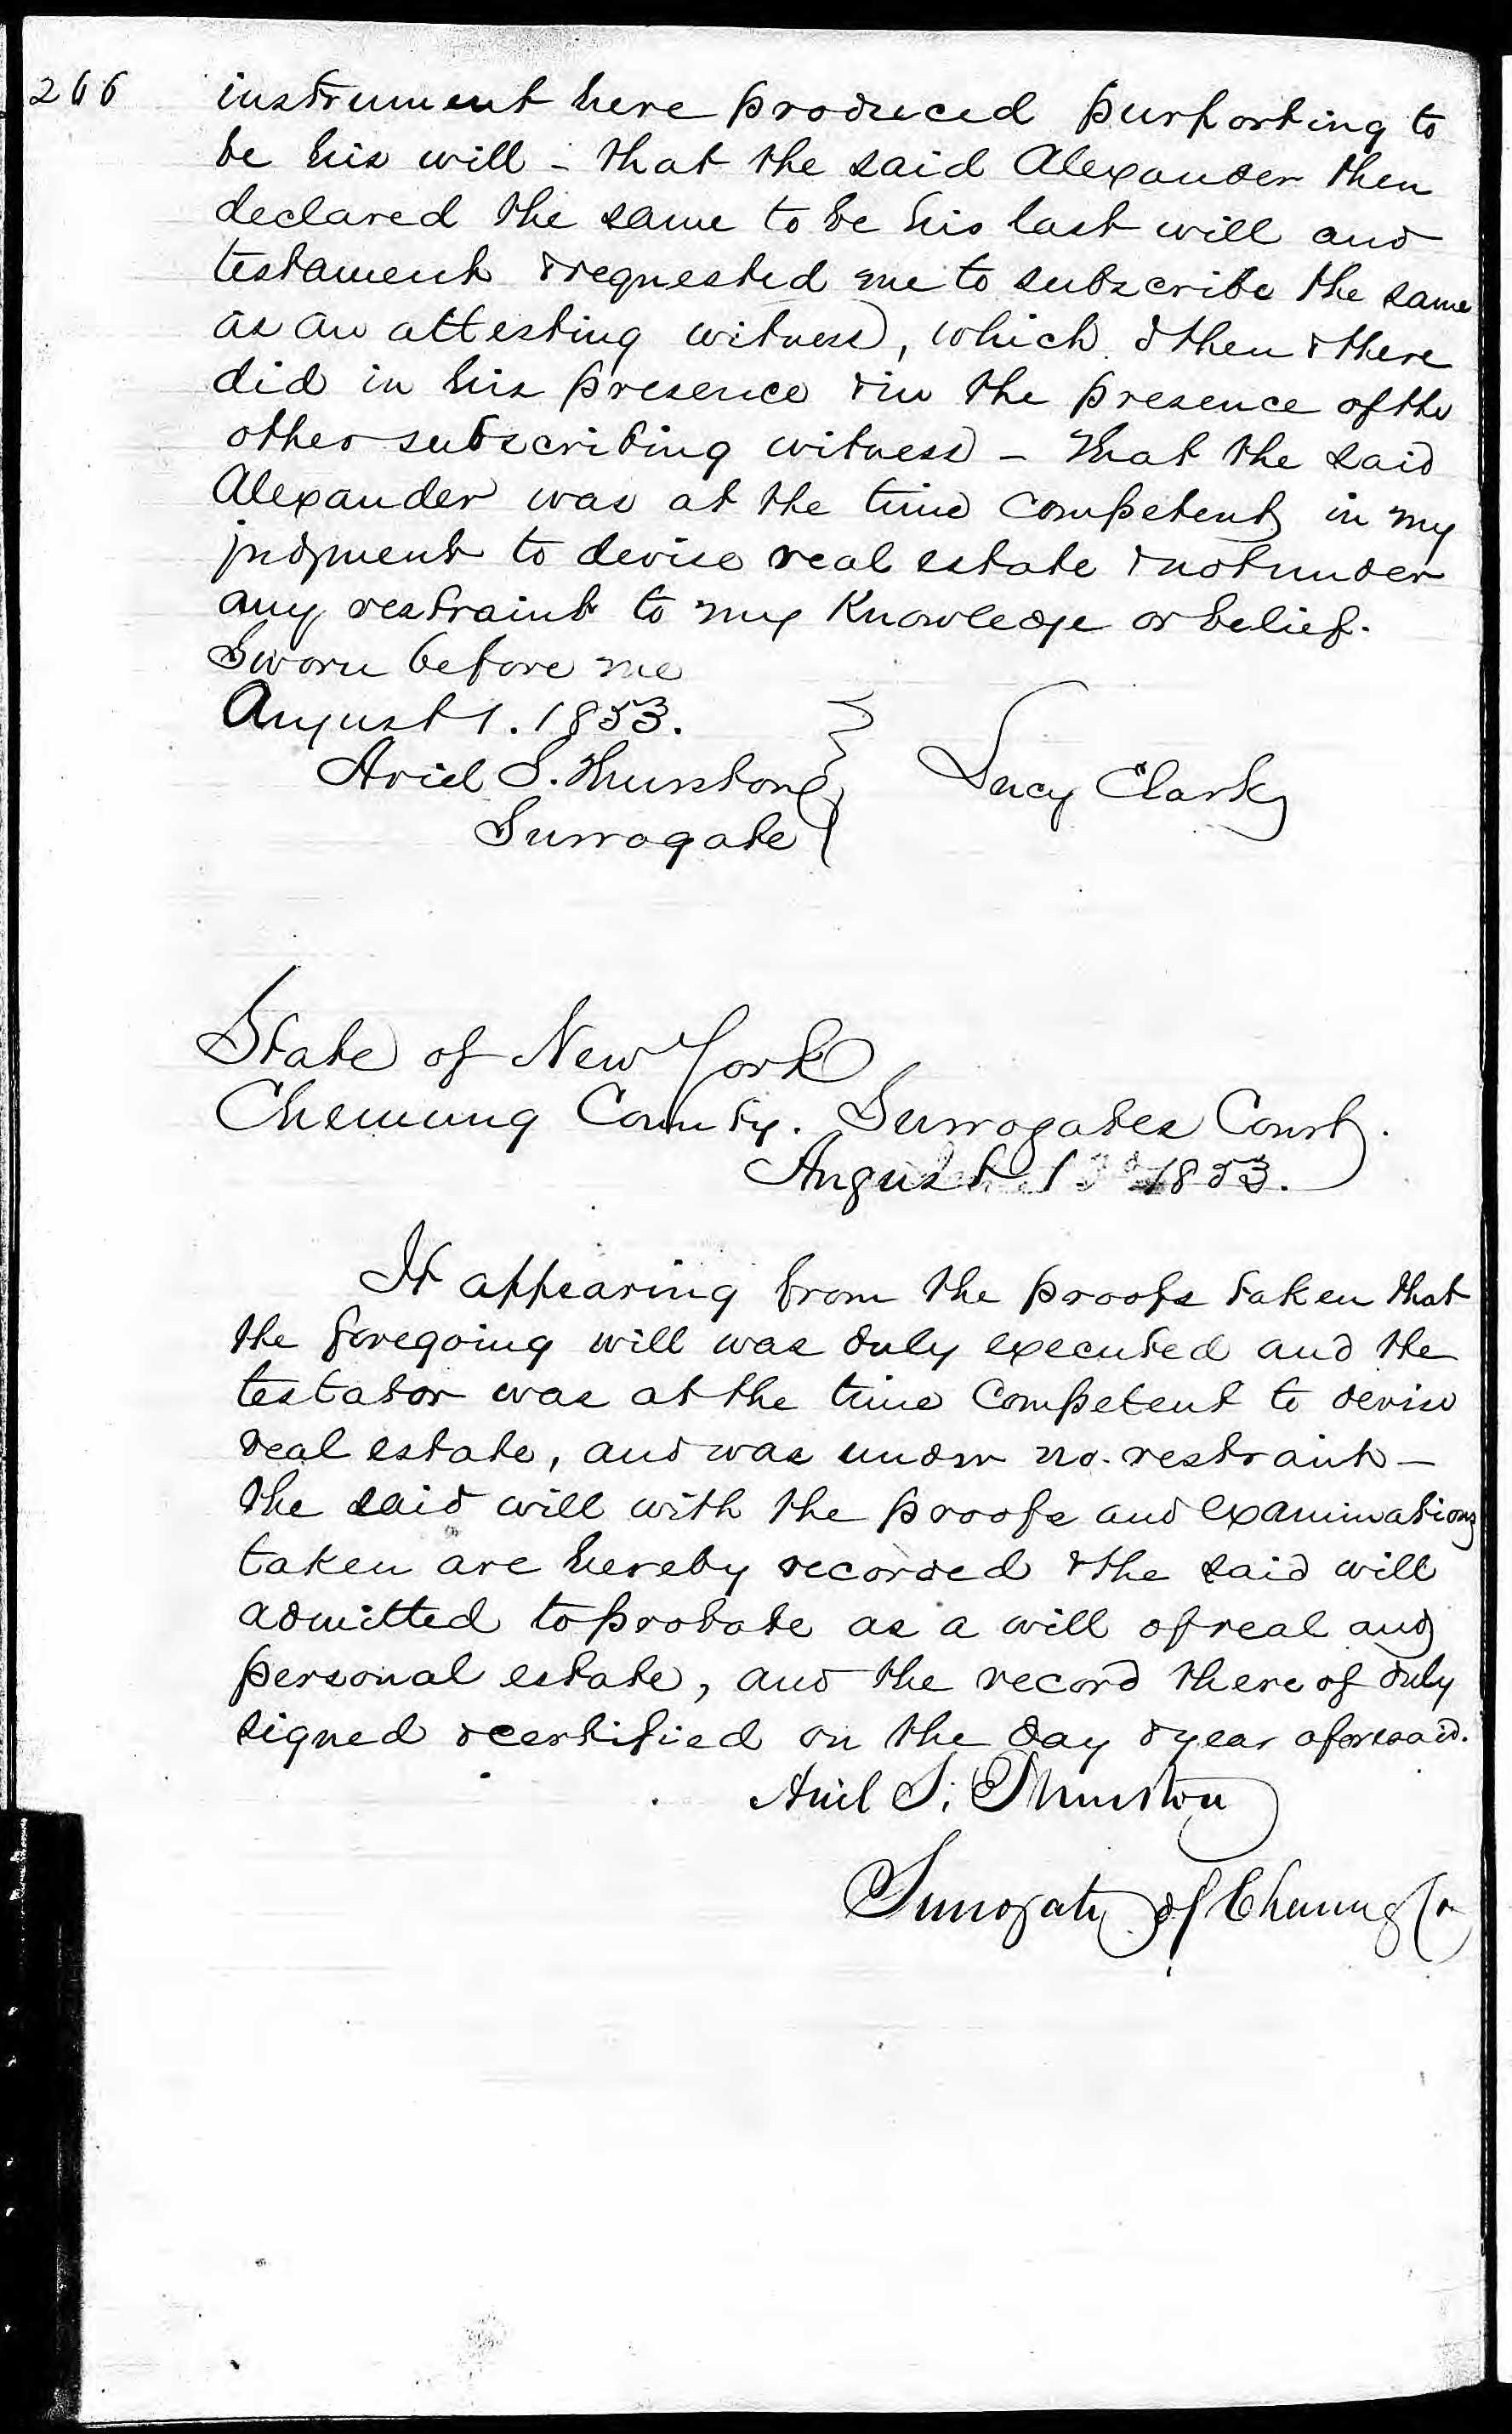 266
instrument here produced purporting to
be his will - that the said Alexander then
declared the same to be his last will and
testament & requested me to subscribe the same
as an attesting witness, which I then & there
did in his presence & in the presence of the
other subscribing witness - That the said
Alexander was at the time competent in my
judgment to devise real estate & not under
any restraint to my Knowledge or belief.
Sworn before me
August 1. 1853.
Ariel S. Thurston
Surrogate
Lucy Clark
State of New York
Chemung County. Surrogates Court.
August 1 1853.
It appearing from the proofs taken that
the foregoing will was duly executed and the
testator was at the time Competent to devise
real estate, and was under no restraint -
the said will with the proofs and examinations
taken are hereby recorded & the said will
admitted to probate as a will of real and
personal estate, and the record there of duly
signed & certified on the day & year aforesaid.
Ariel S. Thurston
Surrogate of Chemung Co